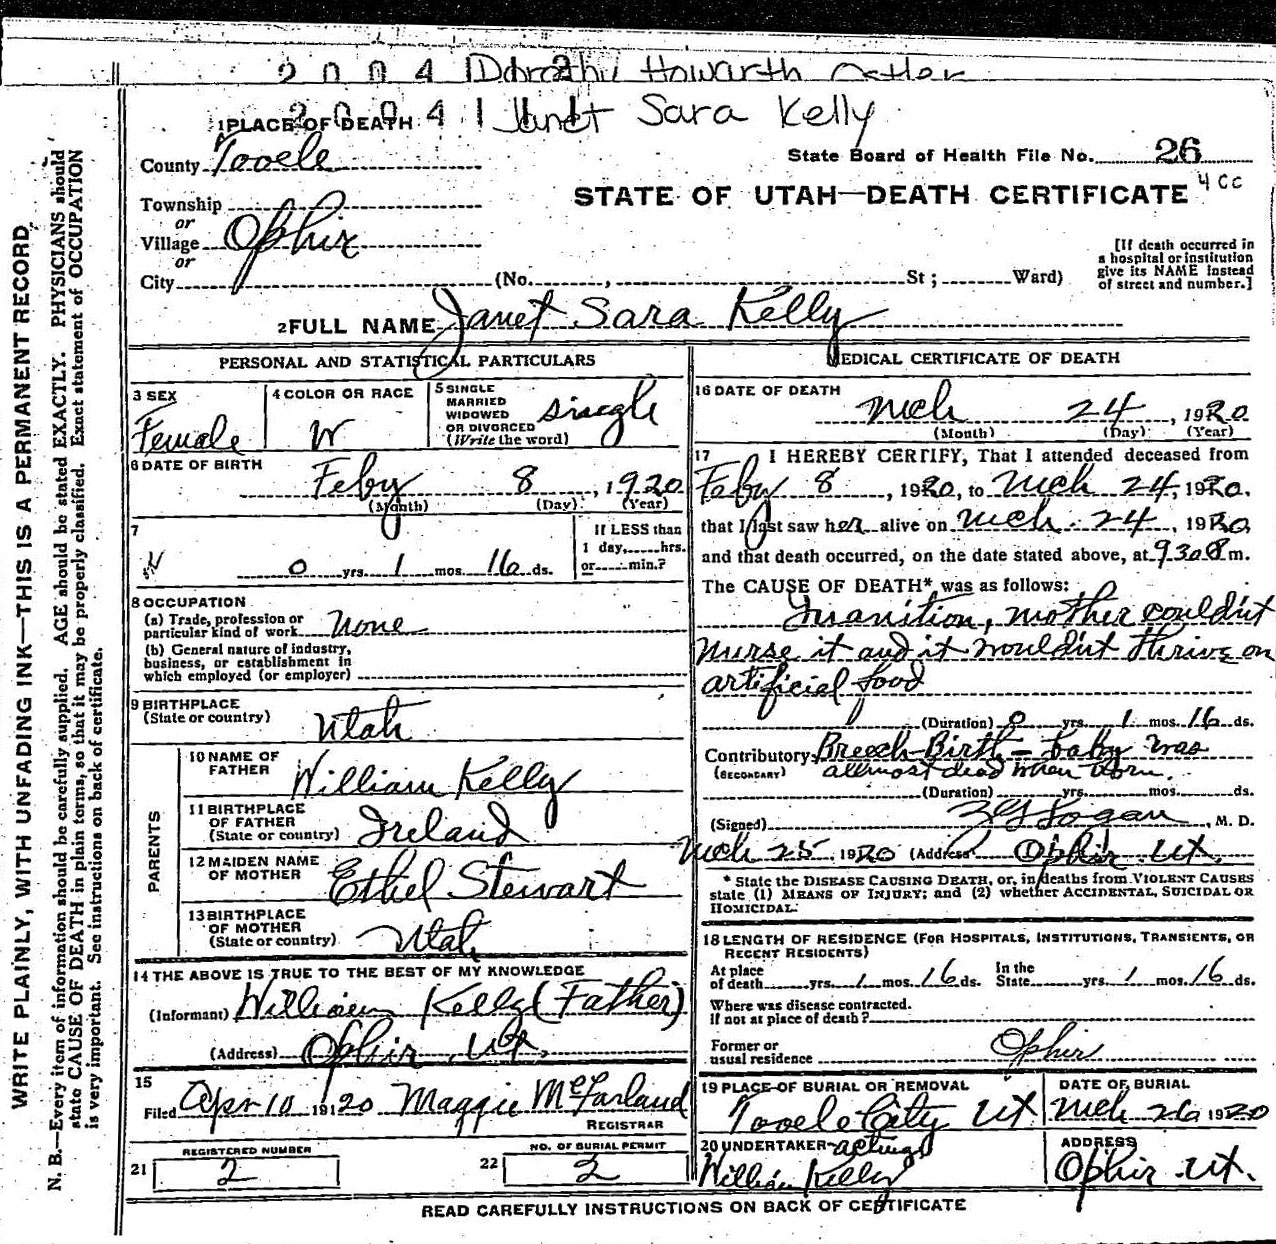 2 0 0 4 1 Dorothy Howarth
2 0 0 4 1 Janet Sara Kelly
1 PLACE OF DEATH
County Tooele
State Board of Health File No. 26
STATE OF UTAH—DEATH CERTIFICATE 4 cc
Township
or
Village Ophir
or
City (No. , St ; Ward)
[If death occurred in
a hospital or institution
give its NAME instead
of street and number.]
2 FULL NAME Janet Sara Kelly
PERSONAL AND STATISTICAL PARTICULARS
3 SEX
Female
4 COLOR OR RACE
W
5 SINGLE
MARRIED
WIDOWED
OR DIVORCED
(Write the word)
single
6 DATE OF BIRTH
Feby 8, 1920
(Month) (Day) (Year)
7
0 yrs. 1 mos. 16 ds.
If LESS than
1 day, hrs.
or min.?
8 OCCUPATION
(a) Trade, profession or
particular kind of work None
(b) General nature of industry,
business, or establishment in
which employed (or employer)
9 BIRTHPLACE
(State or country) Utah
PARENTS
10 NAME OF
FATHER William Kelly
11 BIRTHPLACE
OF FATHER
(State or country) Ireland
12 MAIDEN NAME
OF MOTHER Ethel Stewart
13 BIRTHPLACE
OF MOTHER
(State or country) Utah
14 THE ABOVE IS TRUE TO THE BEST OF MY KNOWLEDGE
(Informant) William Kelly (Father)
(Address) Ophir, Ut,
15
Filed Apr 10 1920 Maggie McFarland
REGISTRAR
REGISTERED NUMBER
21 2
NO. OF BURIAL PERMIT
22 2
MEDICAL CERTIFICATE OF DEATH
16 DATE OF DEATH
Mch 24, 1920
(Month) (Day) (Year)
17 I HEREBY CERTIFY, That I attended deceased from
Feby 8, 1920, to Mch 24, 1920.
that I last saw her alive on Mch. 24, 1920
and that death occurred, on the date stated above, at 930 P m.
The CAUSE OF DEATH* was as follows:
Inanition, mother couldnt
nurse it and it wouldnt thrive on
artificial food
(Duration) 0 yrs. 1 mos. 16 ds.
Contributory Breech-Birth - baby was
(SECONDARY) allmost dead when born.
(Duration) yrs. mos. ds.
(Signed) Logan, M. D.
Mch 25, 1920 (Address) Ophir. Ut.
* State the DISEASE CAUSING DEATH, or, in deaths from VIOLENT CAUSES
state (1) MEANS OF INJURY; and (2) whether ACCIDENTAL, SUICIDAL OR
HOMICIDAL.
18 LENGTH OF RESIDENCE (FOR HOSPITALS, INSTITUTIONS, TRANSIENTS, OR
RECENT RESIDENTS)
At place
of death yrs. 1 mos. 16 ds. In the
State yrs. 1 mos. 16 ds.
Where was disease contracted.
if not at place of death?
Former or
usual residence Ophir
19 PLACE OF BURIAL OR REMOVAL
Tooele City Ut
DATE OF BURIAL
Mch 26 1920
20 UNDERTAKER acting
William Kelly
ADDRESS
Ophir Ut.
READ CAREFULLY INSTRUCTIONS ON BACK OF CERTIFICATE
WRITE PLAINLY, WITH UNFADING INK—THIS IS A PERMANENT RECORD.
N. B.—Every item of information should be carefully supplied. AGE should be stated EXACTLY. PHYSICIANS should
state CAUSE OF DEATH in plain terms, so that it may be properly classified. Exact statement of OCCUPATION
is very important. See instructions on back of certificate.